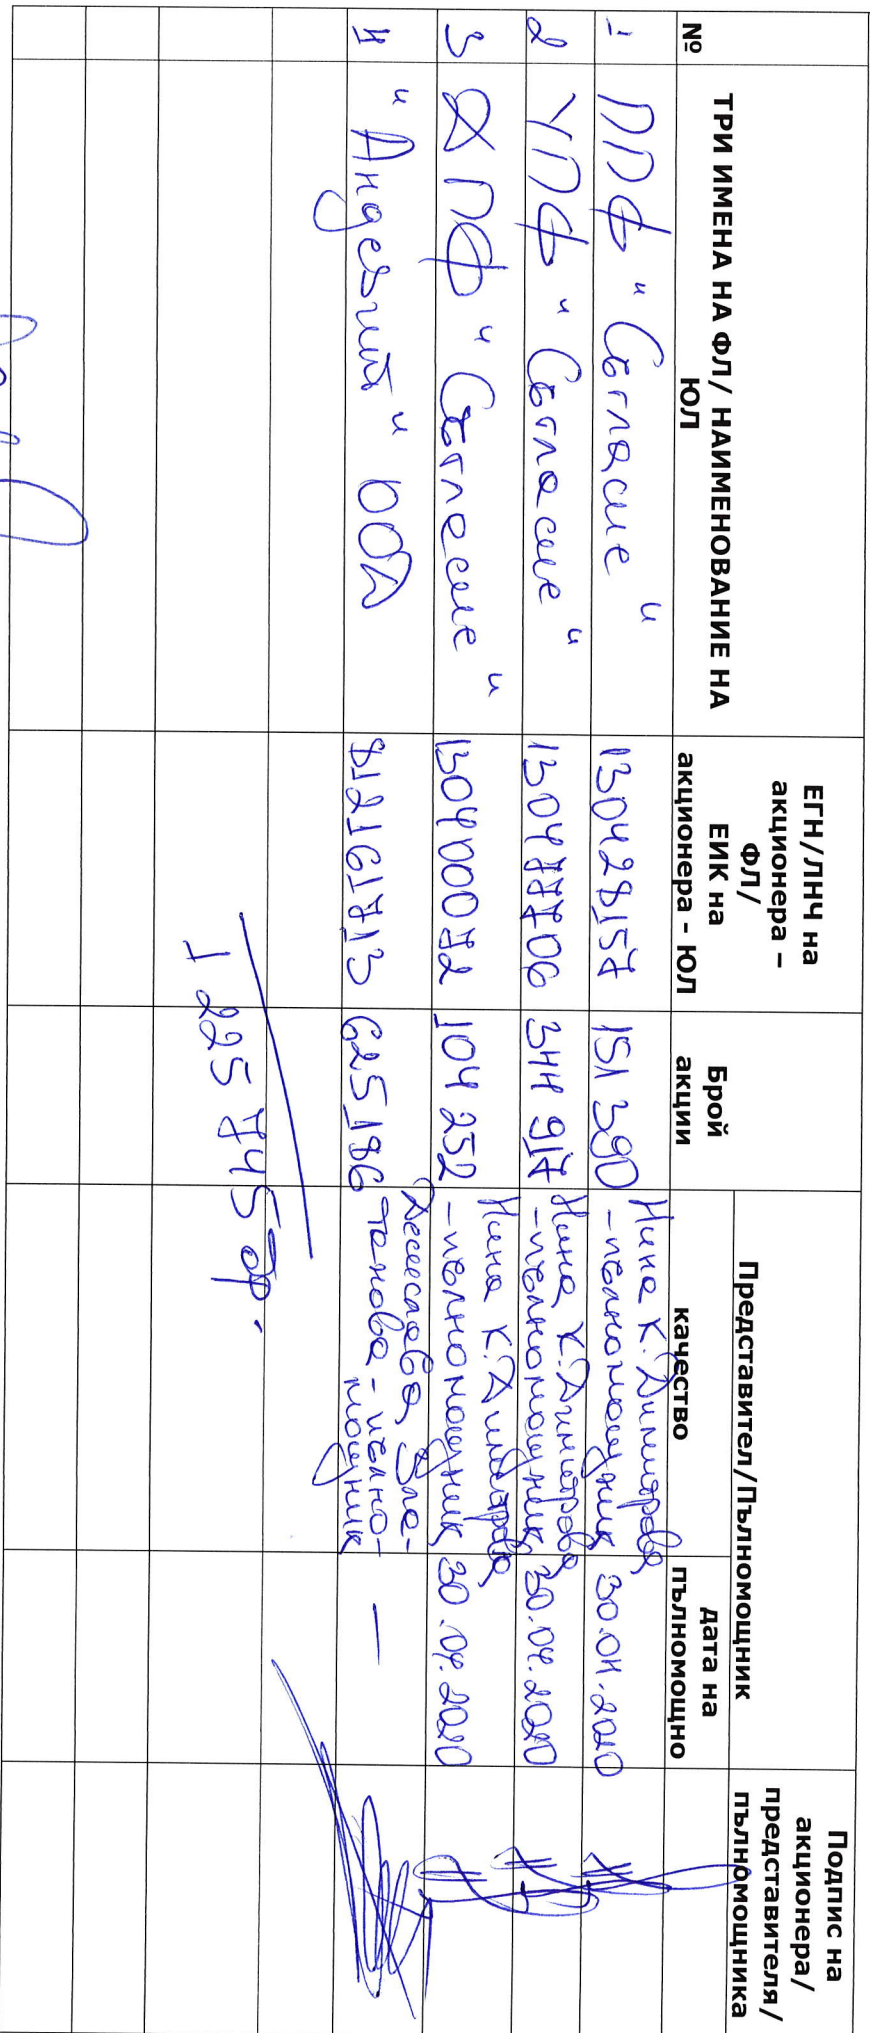 №
ТРИ ИМЕНА НА ФЛ/ НАИМЕНОВАНИЕ НА
ЮЛ
ЕГН/ЛНЧ на
акционера –
ФЛ/
ЕИК на
акционера - ЮЛ
Брой
акции
Представител/Пълномощник
качество
дата на
пълномощно
Подпис на
акционера/
представителя/
пълномощника
1 ППФ "Съгласие" 130428157 151 390 Нина К. Димитрова
- пълномощник 30.04.2020
2 УПФ "Съгласие" 130477706 344 917 Нина К. Димитрова
- пълномощник 30.04.2020
3 ДПФ "Съгласие" 130400072 104 252 Нина К. Димитрова
- пълномощник 30.04.2020
4 "Андезит" ООД 812161713 625 186 Десислава Зла-
танова - пълно-
мощник —
1 225 745 бр.